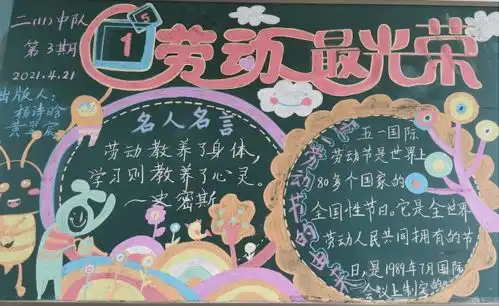 二(1)中队
第3期
2021.4.21
出版人：
5
1
劳动最光荣
名人名言
劳动教养了身体，
学习则教养了心灵。
—史密斯
劳动节的由来
五一国际
劳动节是世界上
80多个国家的
全国性节日。它是全世界
劳动人民共同拥有的节
日，是1989年7月国际
会议上制定的